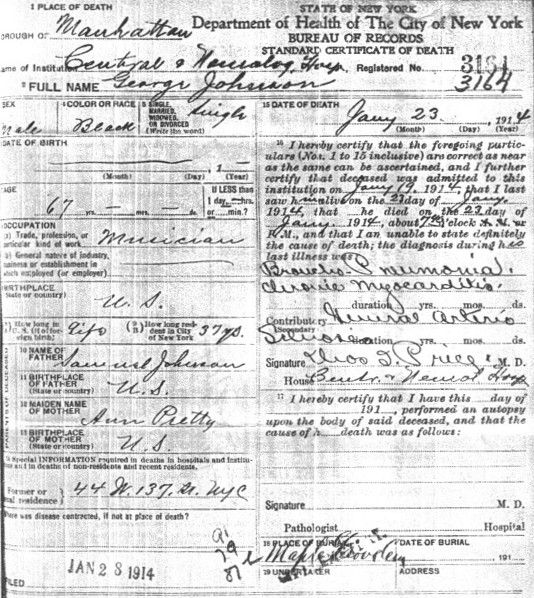 1 PLACE OF DEATH
STATE OF NEW YORK
Department of Health of The City of New York
BUREAU OF RECORDS
STANDARD CERTIFICATE OF DEATH
BOROUGH OF Manhattan
Name of Institution Central & Neurolog. Hosp. Registered No. 3164
3164
2 FULL NAME George Johnson
SEX
Male
4 COLOR OR RACE
Black
5 SINGLE, MARRIED, WIDOWED, OR DIVORCED (Write the word)
Single
DATE OF BIRTH
(Month) (Day) (Year)
AGE
67 yrs. mos.
If LESS than
1 day, hrs.
or min.?
OCCUPATION
(a) Trade, profession, or
particular kind of work
Musician
(b) General nature of industry,
business or establishment in
which employed (or employer)
BIRTHPLACE
(State or country)
U. S.
How long in
U. S. (if of for-
eign birth)
Life
How long res-
ident in City
of New York
37 ys.
10 NAME OF
FATHER
Samuel Johnson
11 BIRTHPLACE
OF FATHER
(State or country)
U. S.
12 MAIDEN NAME
OF MOTHER
Ann Pretty
13 BIRTHPLACE
OF MOTHER
(State or country)
U. S.
PARENTS OF DECEASED
Special INFORMATION required in deaths in hospitals and institu-
tions and in deaths of non-residents and recent residents.
Former or
usual residence
44 W. 137. St. NYC
Where was disease contracted, if not at place of death?
FILED
JAN 28 1914
15 DATE OF DEATH
Jany 23, 1914
(Month) (Day) (Year)
16 I hereby certify that the foregoing particu-
lars (Nos. 1 to 15 inclusive) are correct as near
as the same can be ascertained, and I further
certify that deceased was admitted to this
institution on Jany 19, 1914, that I last
saw him alive on the 23 day of Jany.
1914, that he died on the 23 day of
Jany. 1914, about 7 o'clock A. M. or
P. M., and that I am unable to state definitely
the cause of death; the diagnosis during his
last illness was:
Broncho-Pneumonia,
chronic myocarditis.
duration yrs. mos. ds.
Contributory General Arterio
(Secondary)
Sclerosis
duration yrs. mos. ds.
Signature Price M. D.
House Centr. & Neurol Hosp
17 I hereby certify that I have this day of
191 , performed an autopsy
upon the body of said deceased, and that the
cause of h death was as follows:
Signature M. D.
Pathologist Hospital
18 PLACE OF BURIAL
Maple Grove Cem
DATE OF BURIAL
191
19 UNDERTAKER
ADDRESS